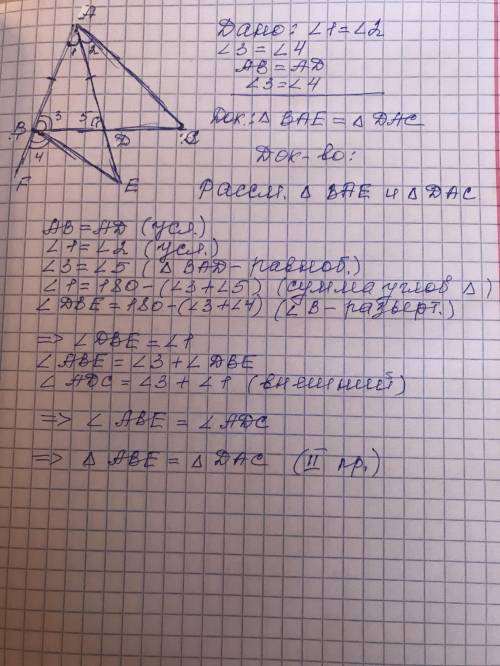 A
1 2
B 3 5 D C
4
F E
Дано: ∠1=∠2
∠3=∠4
AB=AD
∠3=∠4
Док: △ BAE = △ DAC
Док-во:
Рассм. △ BAE и △ DAC
AB=AD (усл.)
∠1=∠2 (усл.)
∠3=∠5 (△ BAD - равноб.)
∠1=180-(∠3+∠5) (сумма углов △)
∠DBE=180-(∠3+∠4) (∠B - разверт.)
=> ∠DBE=∠1
∠ABE=∠3+∠DBE
∠ADC=∠3+∠1 (внешний)
=> ∠ABE=∠ADC
=> △ ABE = △ DAC (II пр.)